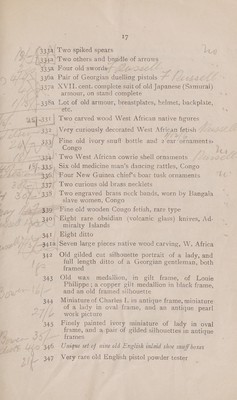 17
333A Two spiked spears
334A Two others and bundle of arrows
335A Four old swords
336A Pair of Georgian duelling pistols
337A XVII. cent. complete suit of old Japanese (Samurai) armour, on stand complete
338A Lot of old armour, breastplates, helmet, backplate, etc.
331 Two carved wood West African native figures
332 Very curiously decorated West African fetish
333 Fine old ivory snuff bottle and 2 ear ornaments, Congo
334 Two West African cowrie shell ornaments
335 Six old medicine man's dancing rattles, Congo
336 Four New Guinea chief's boar tusk ornaments
337 Two curious old brass necklets
338 Two engraved brass neck bands, worn by Bangala slave women, Congo
339 Fine old wooden Congo fetish, rare type
340 Eight rare obsidian (volcanic glass) knives, Admiralty Islands
341 Eight ditto
341A Seven large pieces native wood carving, W. Africa
342 Old gilded cut silhouette portrait of a lady, and full length ditto of a Georgian gentleman, both framed
343 Old wax medallion, in gilt frame, of Louie Philippe; a copper gilt medallion in black frame, and an old framed silhouette
344 Miniature of Charles I. in antique frame, miniature of a lady in oval frame, and an antique pearl work picture
345 Finely painted ivory miniature of lady in oval frame, and a pair of gilded silhouettes in antique frames
346 Unique set of nine old English inlaid shoe snuff boxes
347 Very rare old English pistol powder tester